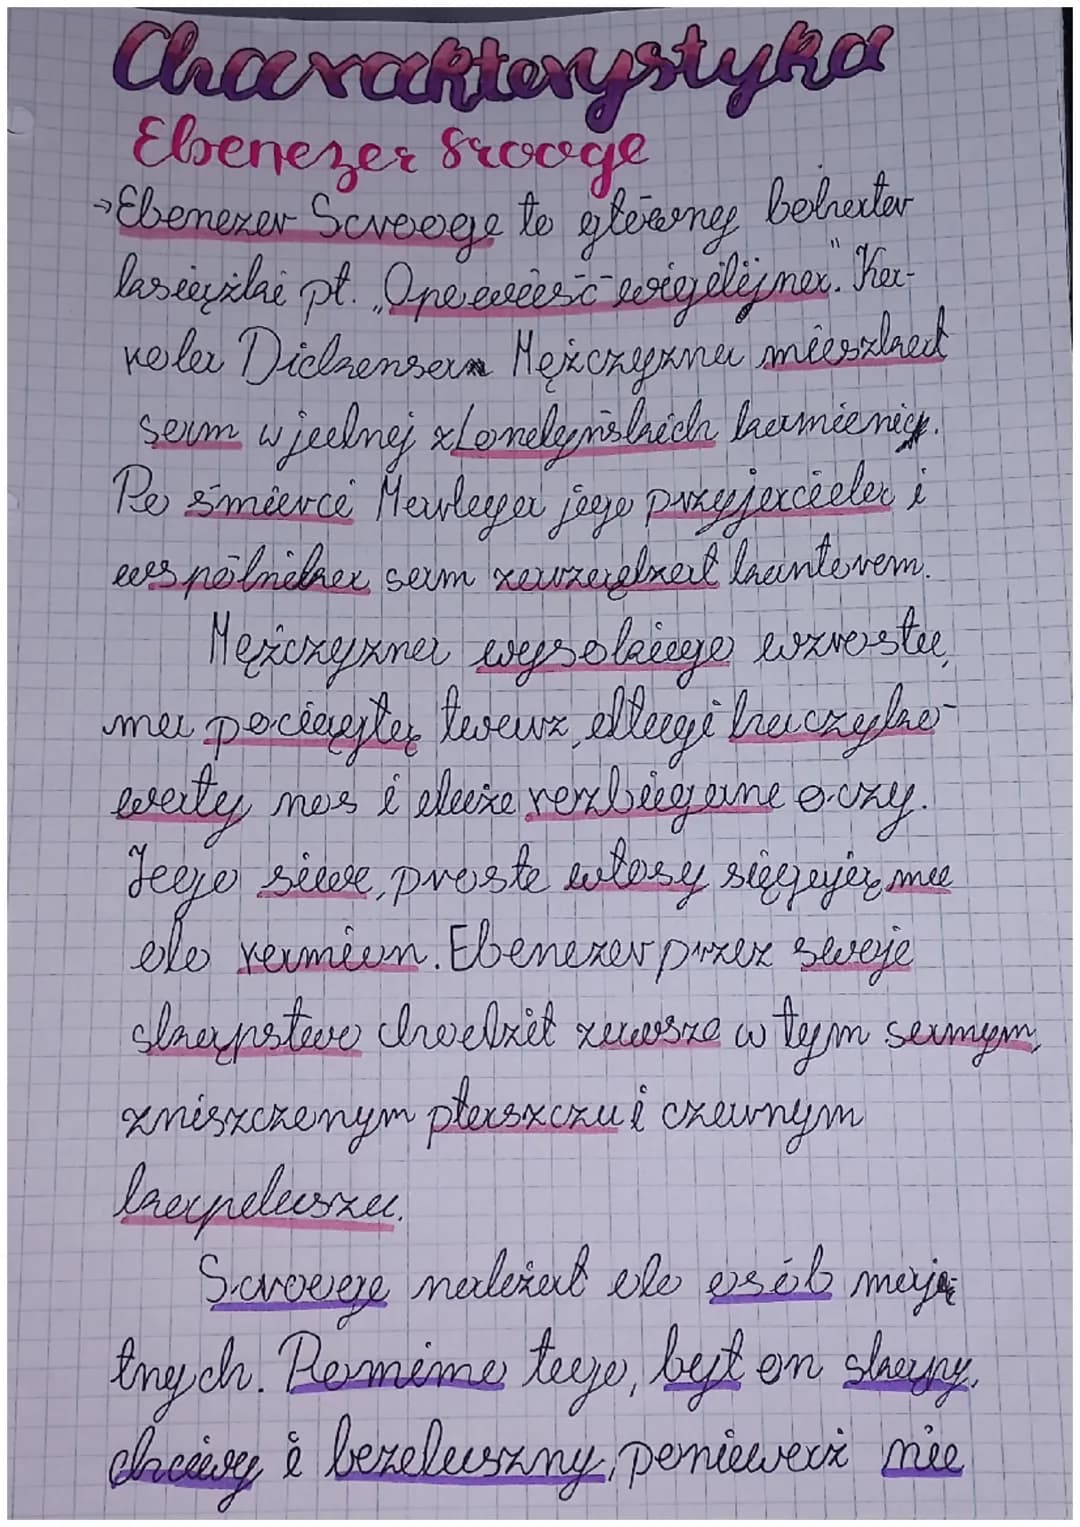 Charakterystyka
Ebenezer Srooge
→Ebenezer Scrooge to główny bohater
książki pt. „Opowieść wigilijna". Ka-
rola Dickensa Mężczyzna mieszkał
sam w jednej z Londyńskich kamienic.
Po śmierci Marleya jego przyjaciela i
wspólnika sam zarządzał kantorem.
Mężczyzna wysokiego wzrostu,
ma pociągłą twarz, długi haczyko-
waty nos i duże rozbiegane oczy.
Jego siwe, proste włosy sięgają mu
do ramion. Ebenezer przez swoje
skąpstwo chodził zawsze w tym samym,
zniszczonym płaszczu i czarnym
kapeluszu.
Scrooge należał do osób mają-
tnych. Pomimo tego, był on skąpy,
chciwy i bezduszny, ponieważ nie